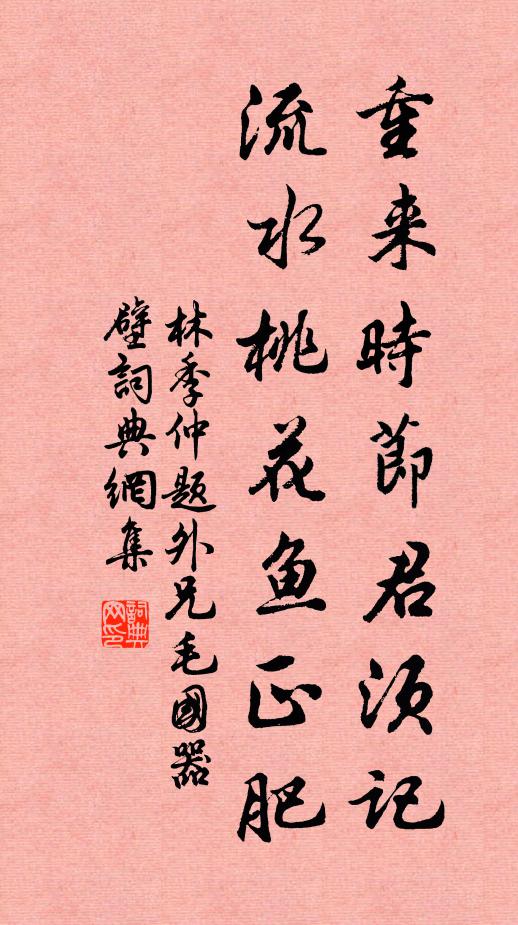 重来時節君須記
流水桃花魚正肥
林季仲題外兄毛國器
壁詞典網集
詞典网印